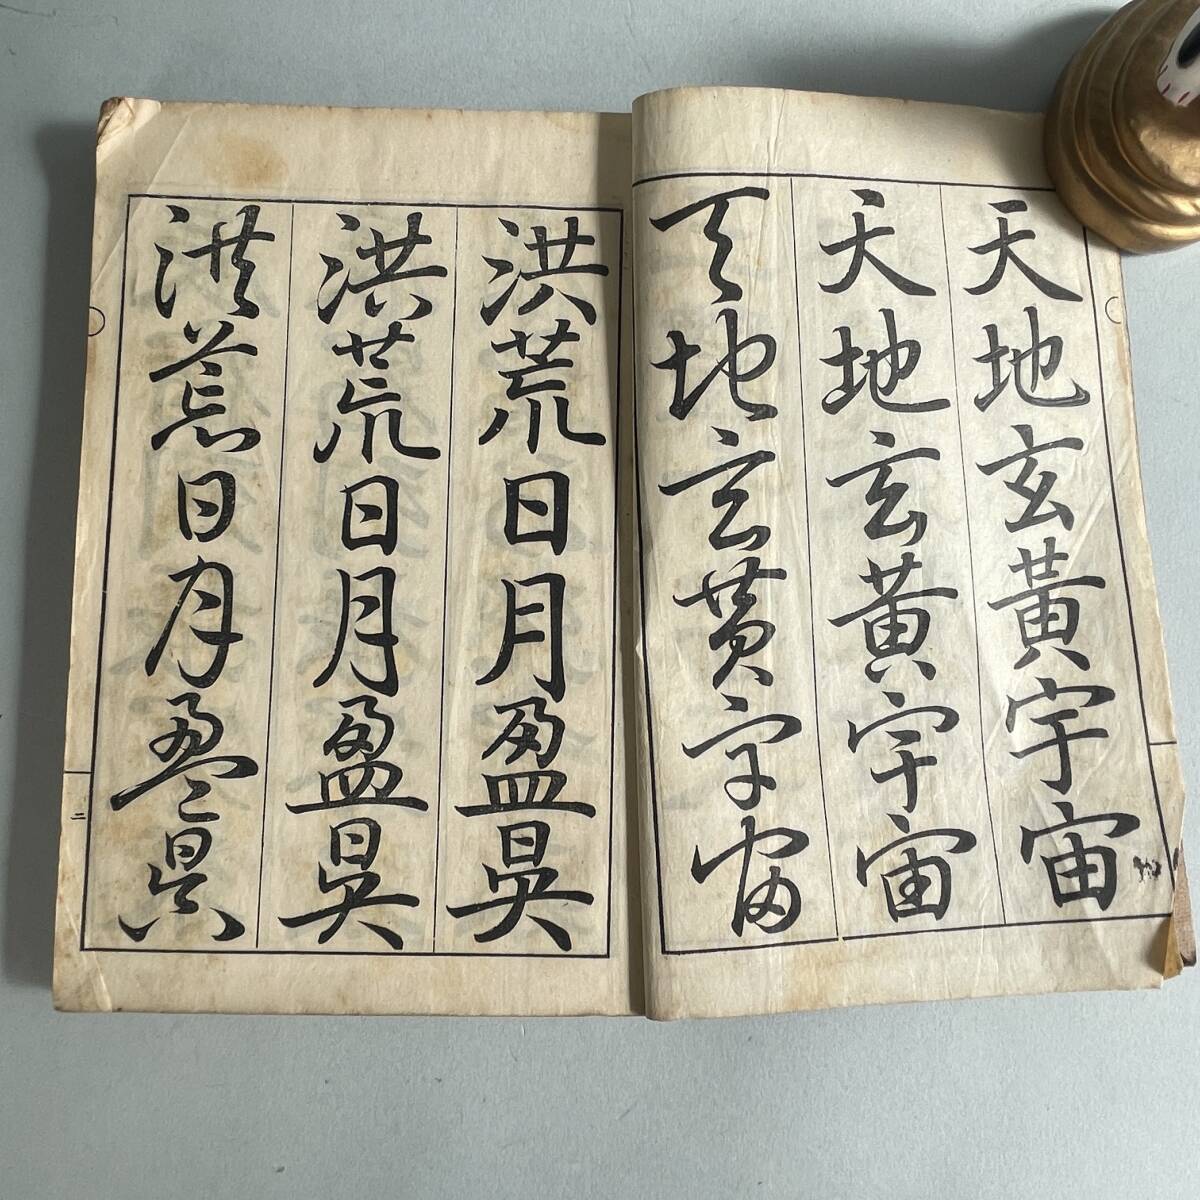 天地玄黃宇宙
天地玄黃宇宙
天地玄黃宇宙
洪荒日月盈昃
洪荒日月盈昃
洪荒日月盈昃
二